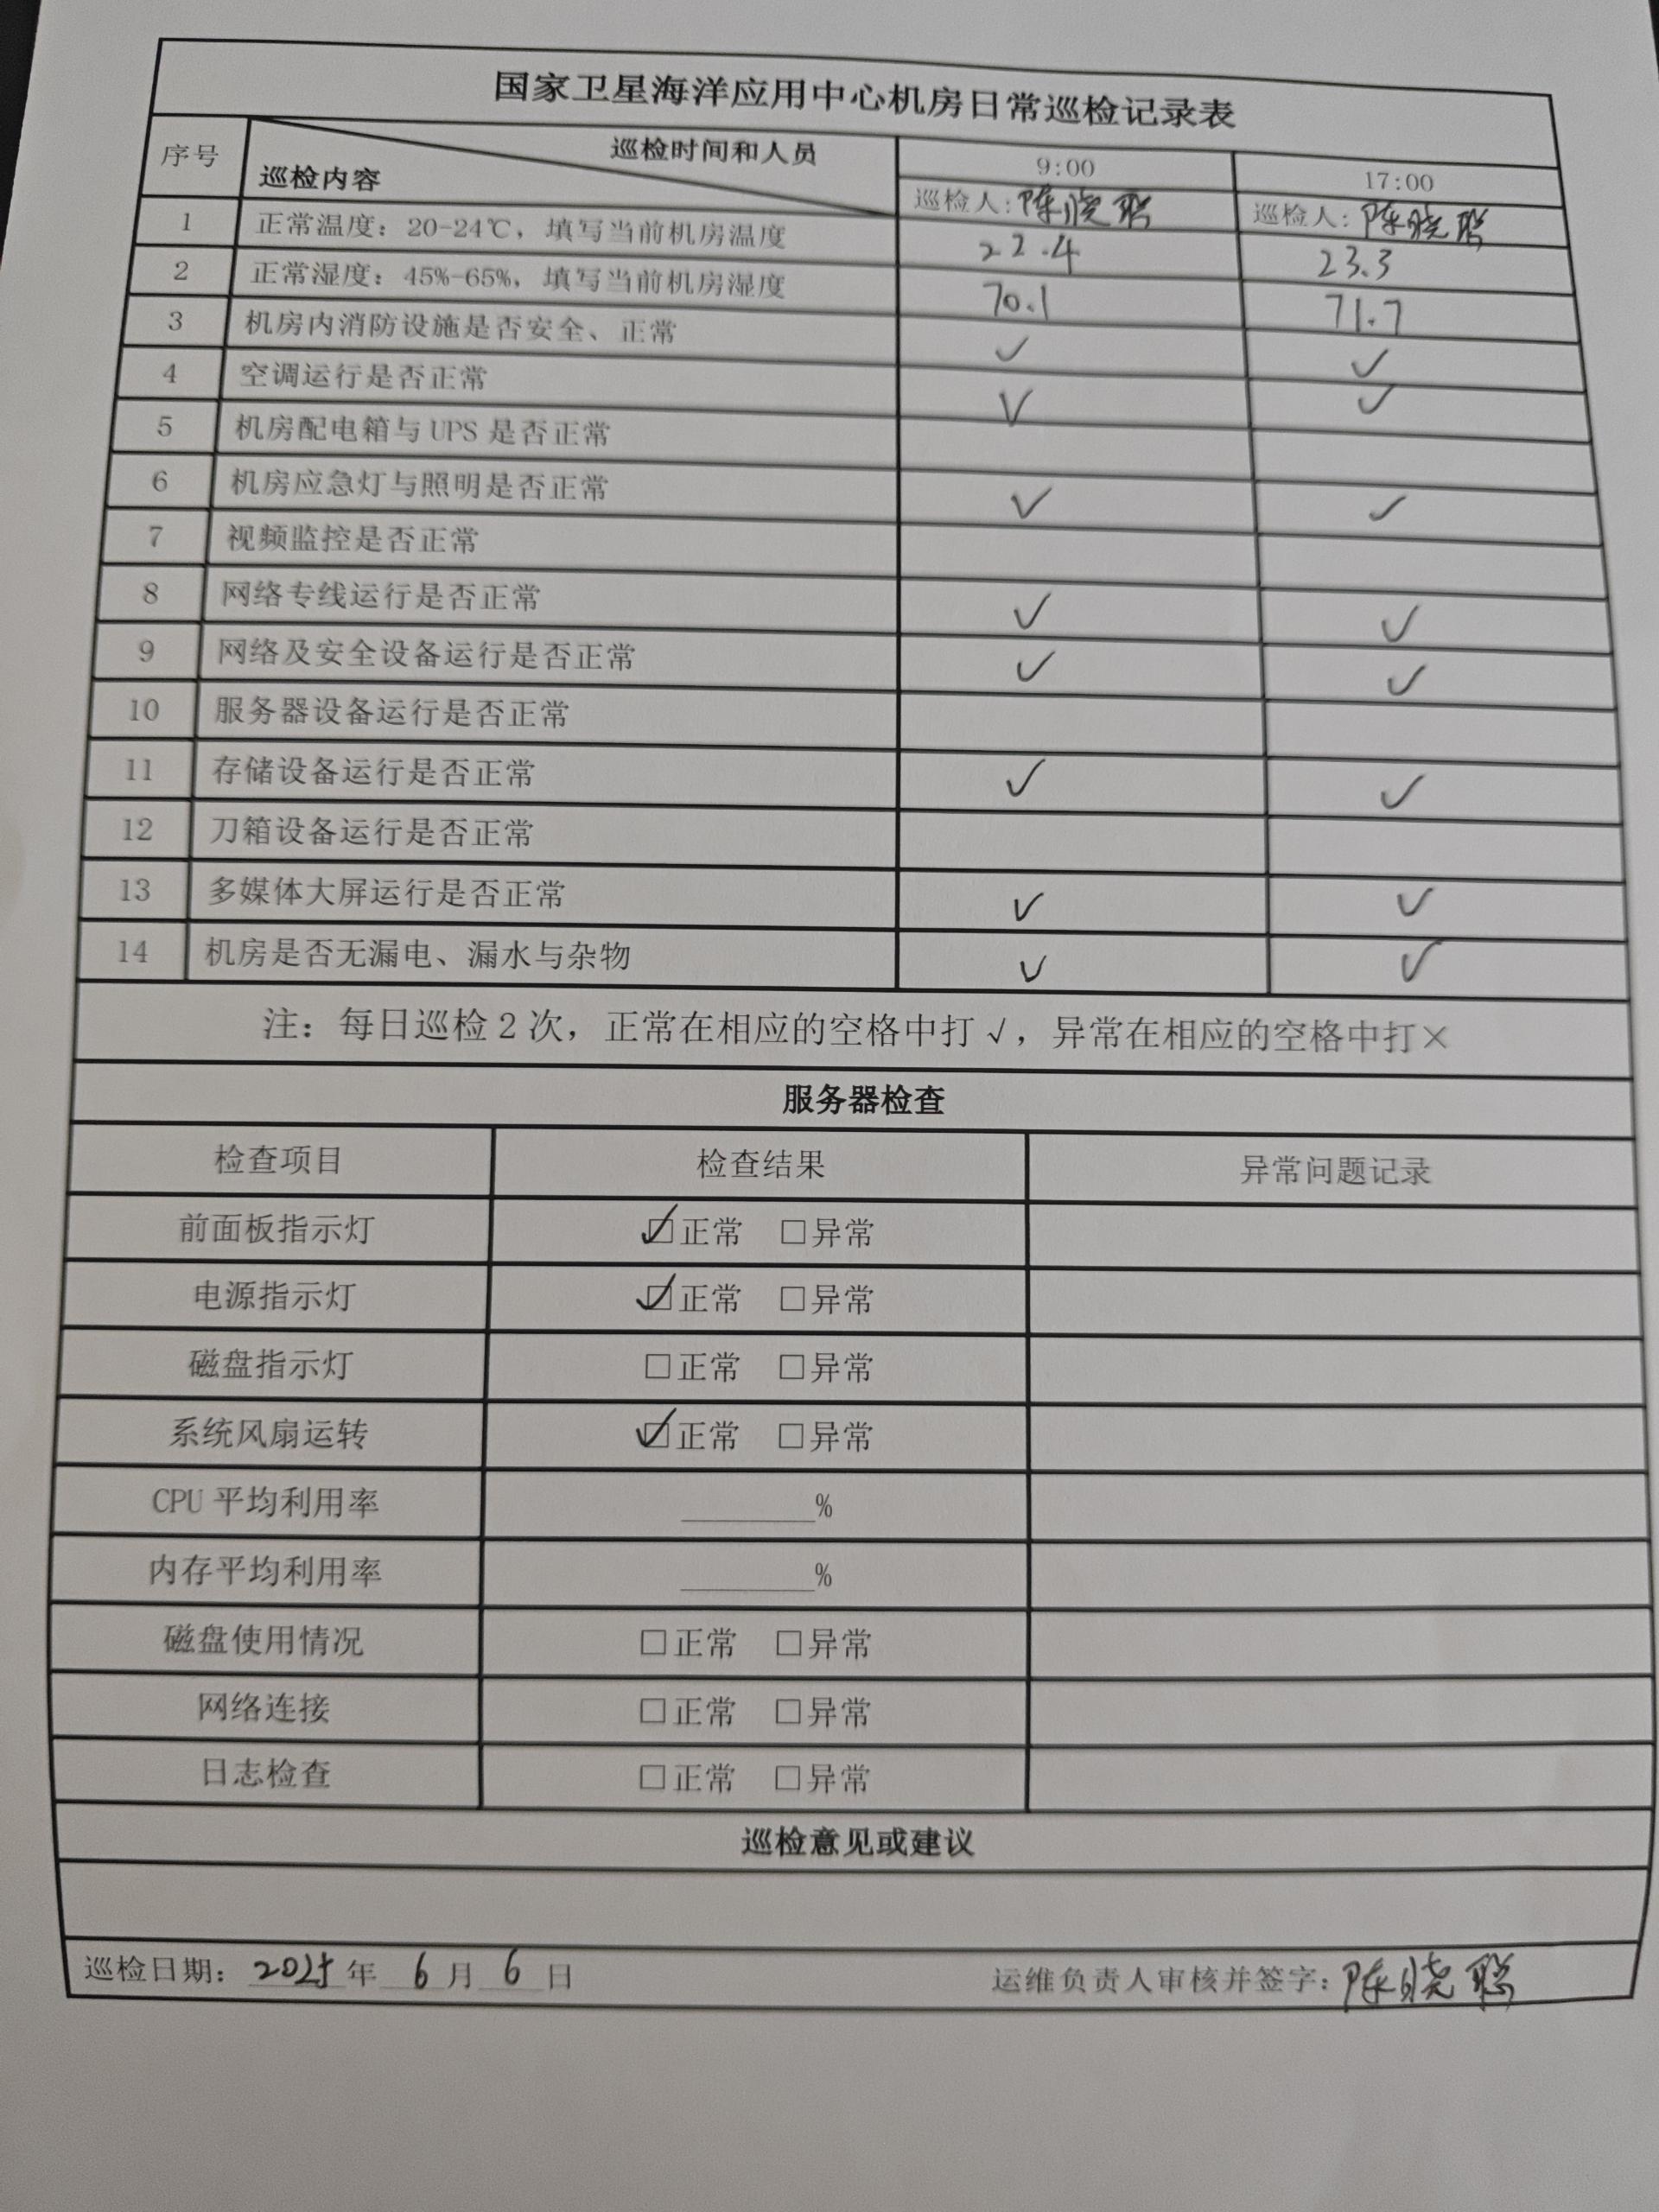 国家卫星海洋应用中心机房日常巡检记录表
序号 巡检时间和人员 巡检内容 9:00 17:00
巡检人:陈晓聪 巡检人:陈晓聪
1 正常温度：20-24℃，填写当前机房温度 22.4 23.3
2 正常湿度：45%-65%，填写当前机房湿度 70.1 71.7
3 机房内消防设施是否安全、正常 ✓ ✓
4 空调运行是否正常 ✓ ✓
5 机房配电箱与 UPS 是否正常
6 机房应急灯与照明是否正常 ✓ ✓
7 视频监控是否正常
8 网络专线运行是否正常 ✓ ✓
9 网络及安全设备运行是否正常 ✓ ✓
10 服务器设备运行是否正常
11 存储设备运行是否正常 ✓ ✓
12 刀箱设备运行是否正常
13 多媒体大屏运行是否正常 ✓ ✓
14 机房是否无漏电、漏水与杂物 ✓ ✓
注：每日巡检 2 次，正常在相应的空格中打√，异常在相应的空格中打×
服务器检查
检查项目 检查结果 异常问题记录
前面板指示灯 ☑正常 □异常
电源指示灯 ☑正常 □异常
磁盘指示灯 □正常 □异常
系统风扇运转 ☑正常 □异常
CPU 平均利用率 ______%
内存平均利用率 ______%
磁盘使用情况 □正常 □异常
网络连接 □正常 □异常
日志检查 □正常 □异常
巡检意见或建议
巡检日期：2025年 6 月 6 日 运维负责人审核并签字：陈晓聪